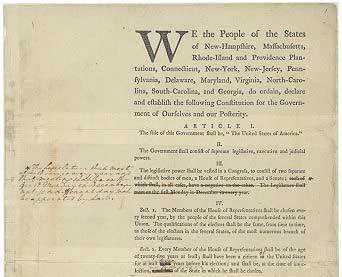 WE the People of the States
of New-Hampſhire, Maſſachuſetts,
Rhode-Iſland and Providence Plan-
tations, Connecticut, New-York, New-Jerſey, Penn-
ſylvania, Delaware, Maryland, Virginia, North-Caro-
lina, South-Carolina, and Georgia, do ordain, declare
and eſtabliſh the following Conſtitution for the Govern-
ment of Ourſelves and our Poſterity.
ARTICLE I.
The ſtile of this Government ſhall be, "The United States of America."
II.
The Government ſhall conſiſt of ſupreme legiſlative, executive and judicial
powers.
III.
The legiſlative power ſhall be veſted in a Congreſs, to conſiſt of two ſeparate
and diſtinct bodies of men, a Houſe of Repreſentatives, and a Senate; each of
which ſhall, in all caſes, have a negative on the other. The Legiſlature ſhall
meet on the firſt Monday in December every year.
The Legislature shall meet
at least once in every year
on the
first Monday in December
unless a different day shall
be appointed by law.
IV.
Sect. 1. The Members of the Houſe of Repreſentatives ſhall be choſen eve-
ry ſecond year, by the people of the ſeveral States comprehended within this
Union. The qualifications of the electors ſhall be the ſame, from time to time,
as thoſe of the electors in the ſeveral States, of the moſt numerous branch of
their own legiſlatures.
Sect. 2. Every Member of the Houſe of Repreſentatives ſhall be of the age
of twenty-five years at leaſt; ſhall have been a citizen in the United States
for at leaſt years before his election; and ſhall be, at the time of his e-
lection, of the State in which he ſhall be choſen.